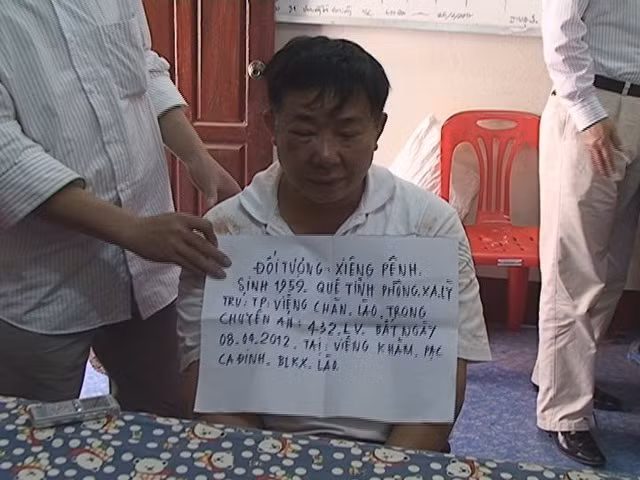 ĐỐI TƯỢNG: XIÊNG PÊNH.
SINH 1959. QUÊ TỈNH PHÔNG.XA.LỲ
TRÚ: TP. VIÊNG CHĂN. LÀO. TRONG
CHUYÊN ÁN: 432.LV. BẮT NGÀY
2012. TẠI: VIÊNG KHĂM, PẠC
CA ĐINH. BLKX. LÀO